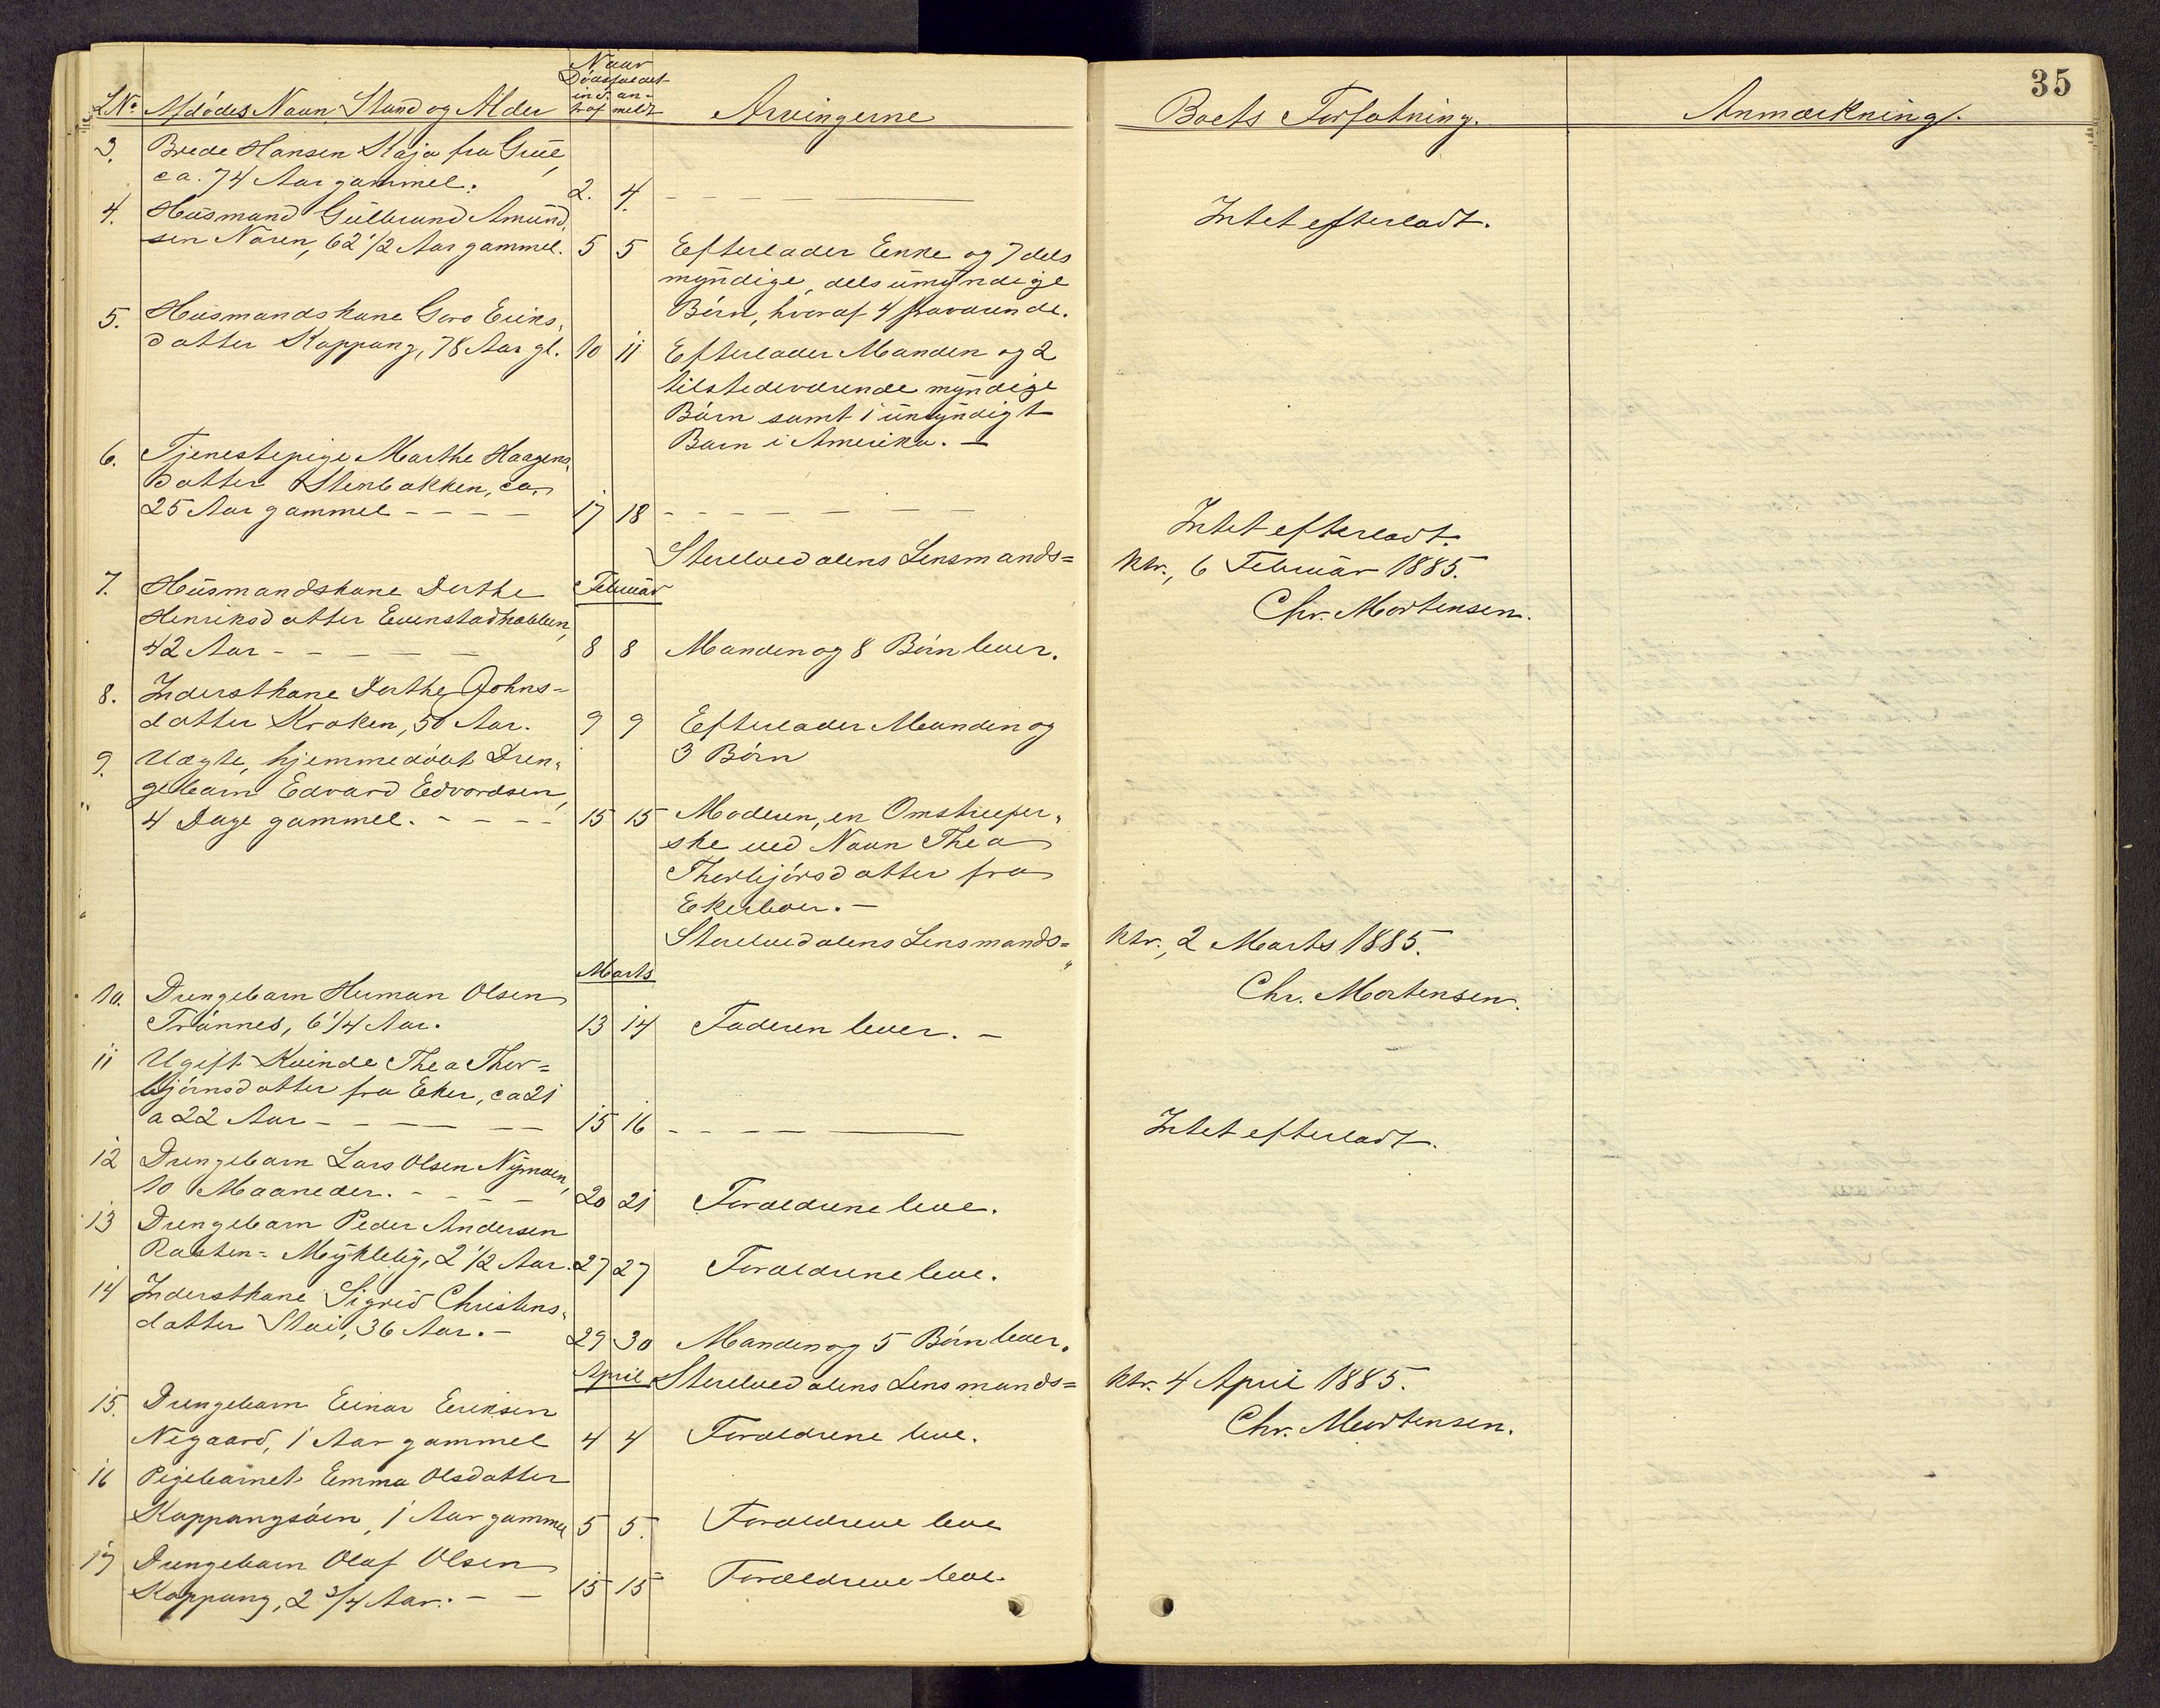 35
Naar
Dødsfaldet
indtraf anmeldt
L No. Afdødes Navn, Stand og Alder Arvingerne Boets Forfatning. Anmærkning.
3. Brede Hansen Kaja fra Grue,
ca. 74 Aar gammel. 2. 4. — — — — Intet efterladt.
4. Husmand Gulbrand Amund,
sen Noren, 62 1/2 Aar gammel. 5 5 Efterlader Enke og 7 dels
myndige, dels umyndige
Børn, hvoraf 4 fraværende.
5. Husmandskone Goro Eriks,
datter Koppang, 78 Aar gl. 10 11 Efterlader Manden og 2
tilstedeværende myndige
Børn samt 1 umyndigt
Barn i Amerika. —
6. Tjenestepige Marthe Haagens,
datter Stenbakken, ca.
25 Aar gammel - - - - 17 18 - - - - - - Intet efterladt.
Storelvedalens Lensmands=
Ktr., 6 Februar 1885.
Chr. Mortensen.
Februar
7. Husmandskone Dorthe
Henriksdatter Evenstadhakken,
42 Aar - - - - - 8 8 Manden og 8 Børn lever.
8. Inderstkone Dorthe Johns=
datter Kroken, 50 Aar. 9 9 Efterlader Manden og
3 Børn
9. Uægte, hjemmedøbt Dren,
gebarn Edvard Edvardsen,
4 Dage gammel. - - - - 15 15 Moderen, en Omstreifer,
ske ved Navn Thea
Thorbjørsdatter fra
Ekerbær. —
Storelvedalens Lensmands=
Ktr., 2 Marts 1885.
Chr. Mortensen.
Marts
10. Drengebarn Herman Olsen
Trønnes, 6 1/4 Aar. 13 14 Faderen lever. -
11 Ugift Kvinde Thea Thor=
bjørnsdatter fra Eker, ca 21
a 22 Aar - - - - - 15 16 - - - - Intet efterladt.
12 Drengebarn Lars Olsen Nymoen,
10 Maaneder. - - - - 20 21 Forældrene leve.
13 Drengebarn Peder Andersen
Rasten= Mykleby, 2 1/2 Aar. 27 27 Forældrene leve.
14 Inderstkone Sigrid Christens,
datter Stai, 36 Aar. - 29 30 Manden og 5 Børn lever.
Storelvedalens Lensmands=
Ktr. 4 April 1885.
Chr. Mortensen.
April
15. Drengebarn Einar Eriksen
Negaard, 1 Aar gammel 4 4 Forældrene leve.
16 Pigebarnet Emma Olsdatter
Koppangsøen, 1 Aar gammel 5 5. Forældrene leve
17 Drengebarn Olaf Olsen
Koppang, 2 3/4 Aar. - - 15 15 Forældrene leve.